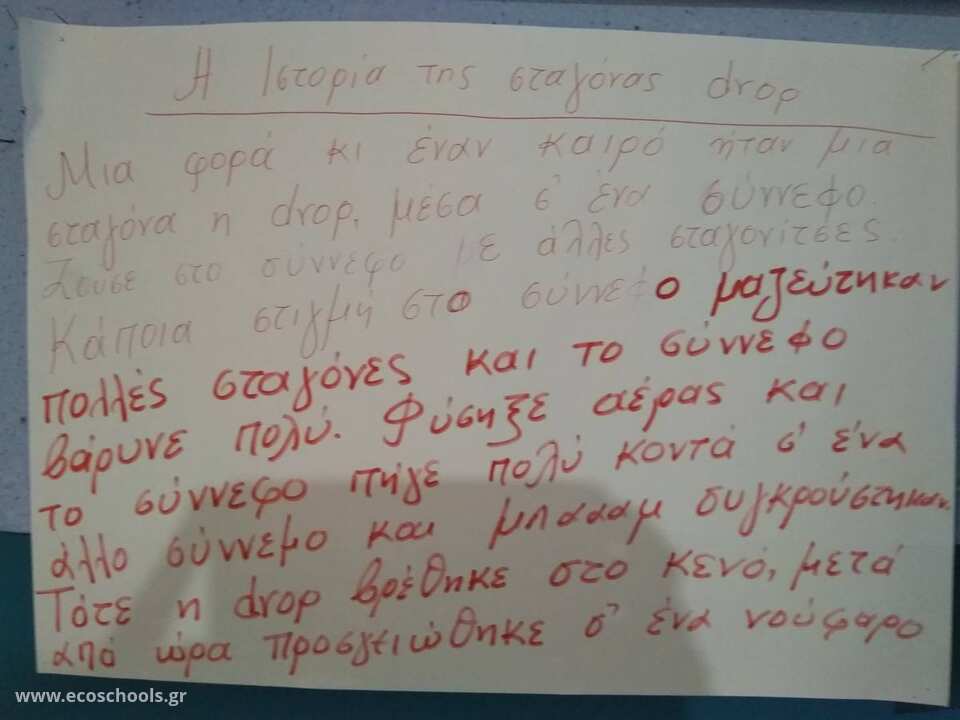 Η Ιστορία της σταγόνας drop
Μια φορά κι έναν καιρό ήταν μια
σταγόνα η drop, μέσα σ' ένα σύννεφο.
Ζούσε στο σύννεφο με άλλες σταγονίτσες.
Κάποια στιγμή στο σύννεφο μαζεύτηκαν
πολλές σταγόνες και το σύννεφο
βάρυνε πολύ. Φύσηξε αέρας και
το σύννεφο πήγε πολύ κοντά σ' ένα
άλλο σύννεμο και μπαααμ συγκρούστηκαν.
Τότε η drop βρέθηκε στο κενό, μετά
από ώρα προσγειώθηκε σ' ένα νούφαρο
www.ecoschools.gr